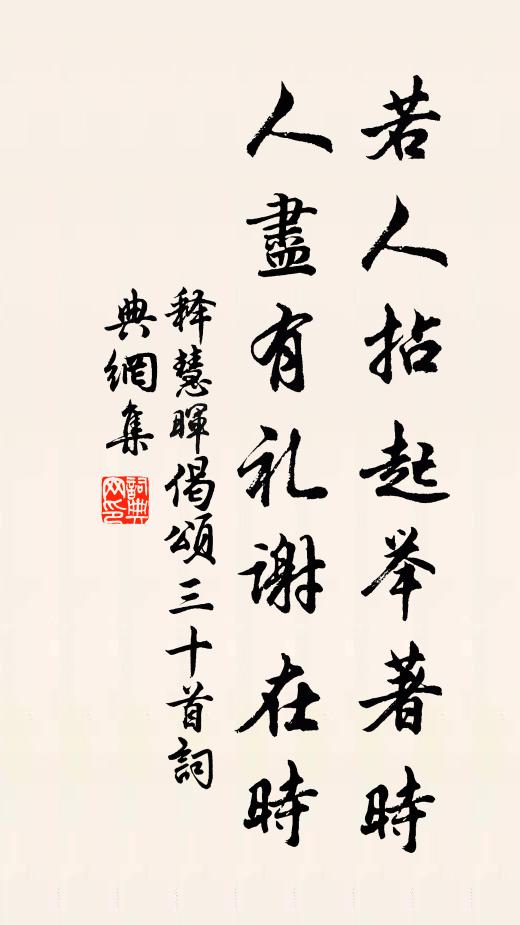 若人拈起举著時
人盡有礼謝在時
释慧暉偈頌三十首詞
典網集
詞典
网印